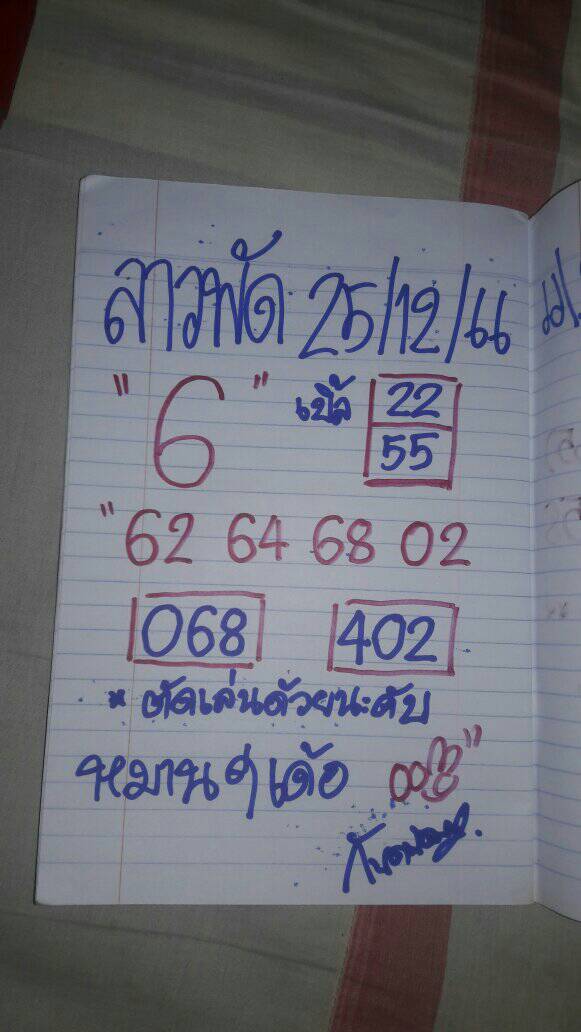 ลาวพัด 25/12/
"6" เบิ้ล 22
55
"62 64 68 02
068 402
* ตัดเล่นด้วยนะคับ
หมานๆเด้อ